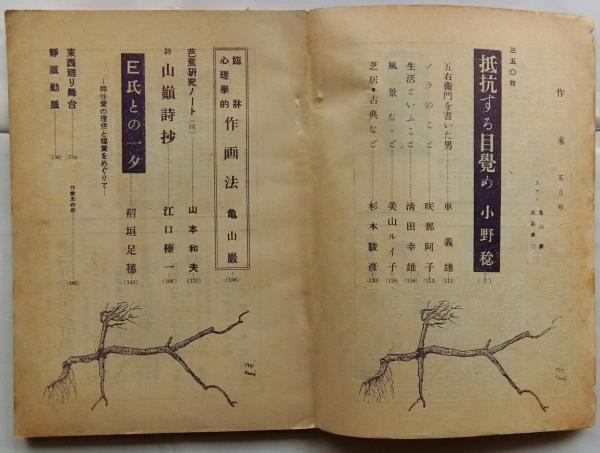 作家 五月号
三五〇枚
抵抗する目覺め 小野稔
五右衛門を書いた男 車義雄 (111)
ノラのこと 咲郷阿子 (114)
生活といふこと 清田幸雄 (116)
風景など 美山ルイ子 (118)
芝居・古典など 杉木駿彦 (120)
臨牀心理學的 作画法 亀山巖 (138)
芭蕉研究ノート(四) 山本和夫 (122)
詩 山巓詩抄 江口榛一 (106)
E氏との一夕 稻垣足穂 (142)
―同性愛の理想と現實をめぐりて―
東西廻り舞台 (154)
靜脈動脈 (156)
作家友の会 (160)